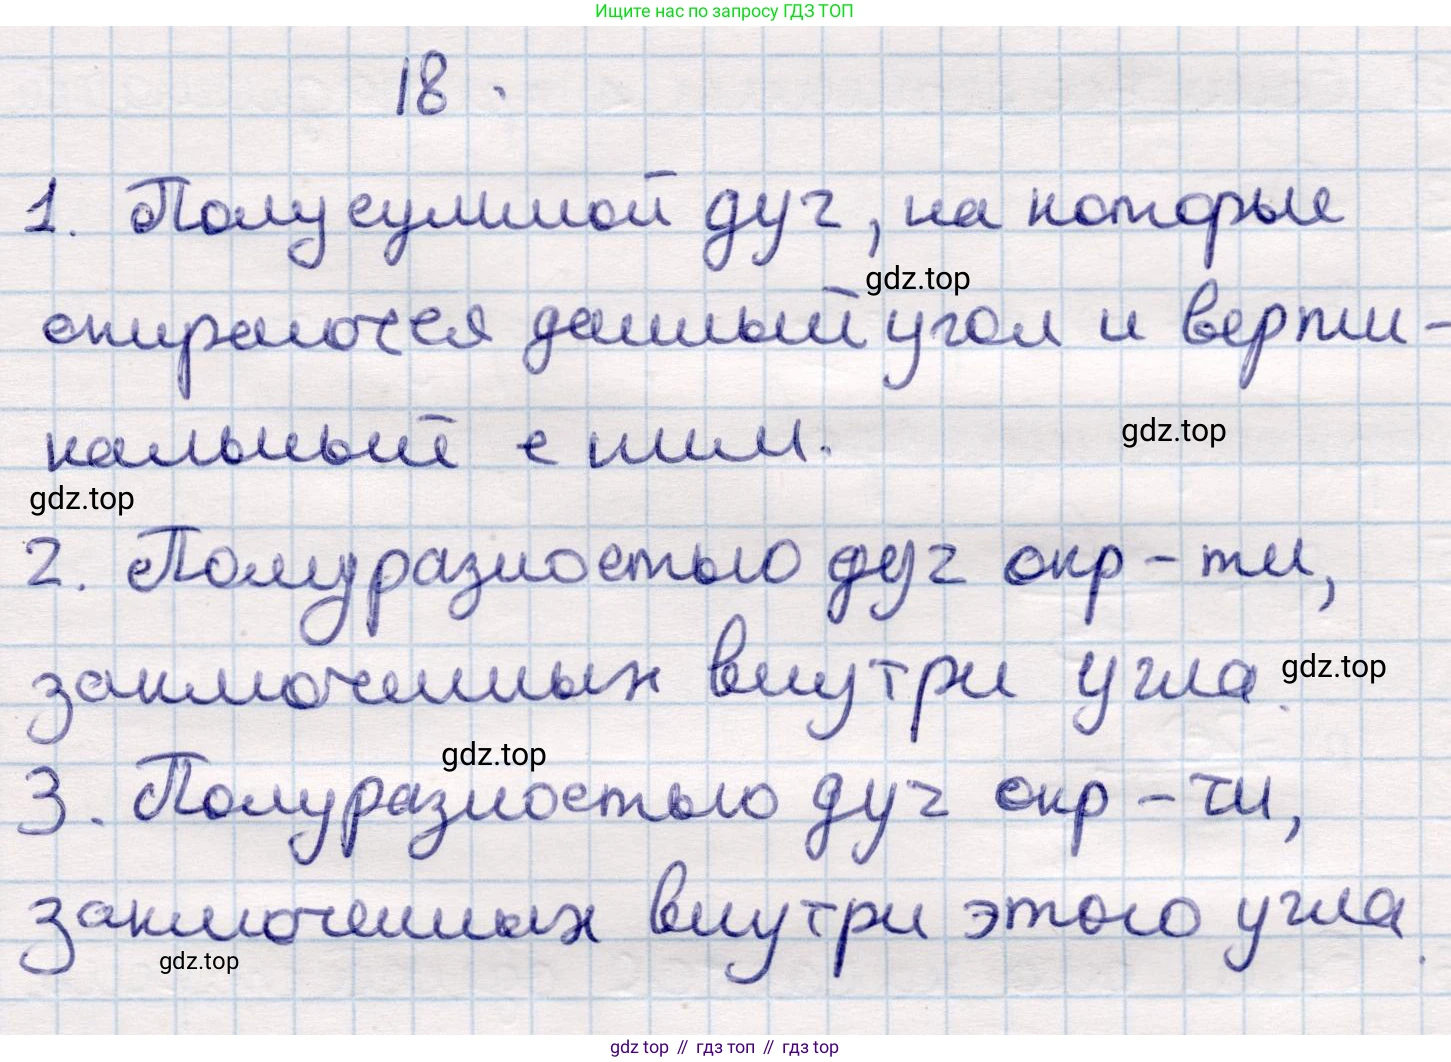 Ищите нас по запросу ГДЗ ТОП
18.
1. Полусуммой дуг, на которые
gdz.top
опираются данный угол и верти-
кальный с ним.
gdz.top
gdz.top
2. Полуразностью дуг окр-ти,
заключенных внутри угла.
gdz.top
gdz.top
3. Полуразностью дуг окр-ти,
заключенных внутри этого угла.
gdz.top
gdz top // гдз топ // гдз top